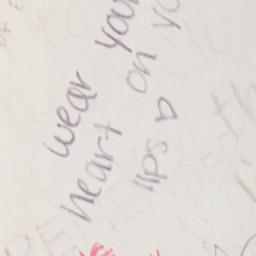 wear you
heart on yo
lips